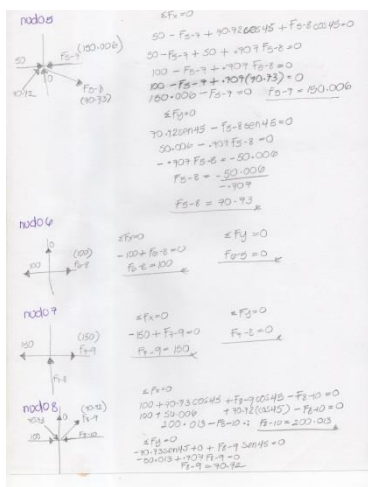 nudo5
ΣFx=0
50 - F5-7 + 70.72cos45 + F5-8cos45=0
50 - F5-7 + 50 + .707F5-8=0
100 - F5-7 + .707F5-8=0
100 - F5-7 + .707(70.73)=0
150.006 - F5-7 =0 F5-7 = 150.006
ΣFy=0
70.72sen45 - F5-8sen45=0
50.006 - .707F5-8=0
-.707F5-8 = -50.006
F5-8 = -50.006
-.707
F5-8 = 70.73
50
F5-7
(150.006)
0
70.72
F5-8
(70.73)
nudo6
0
100
(100)
F6-8
ΣFx=0
-100+F6-8=0
F6-8=100
ΣFy=0
F6-5=0
nudo7
150
(150)
F7-9
F7-8
ΣFx=0
-150+F7-9=0
F7-9=150
ΣFy=0
F7-8=0
nudo8
0
(70.72)
F8-9
70.73
100
F8-10
ΣFx=0
100+70.73cos45 + F8-9cos45 - F8-10=0
100+50.006 +70.72(cos45) - F8-10=0
200.013 - F8-10 ∴ F8-10=200.013
ΣFy=0
-70.73sen45+0 + F8-9 sen45=0
-50.013+.707F8-9=0
F8-9=70.72